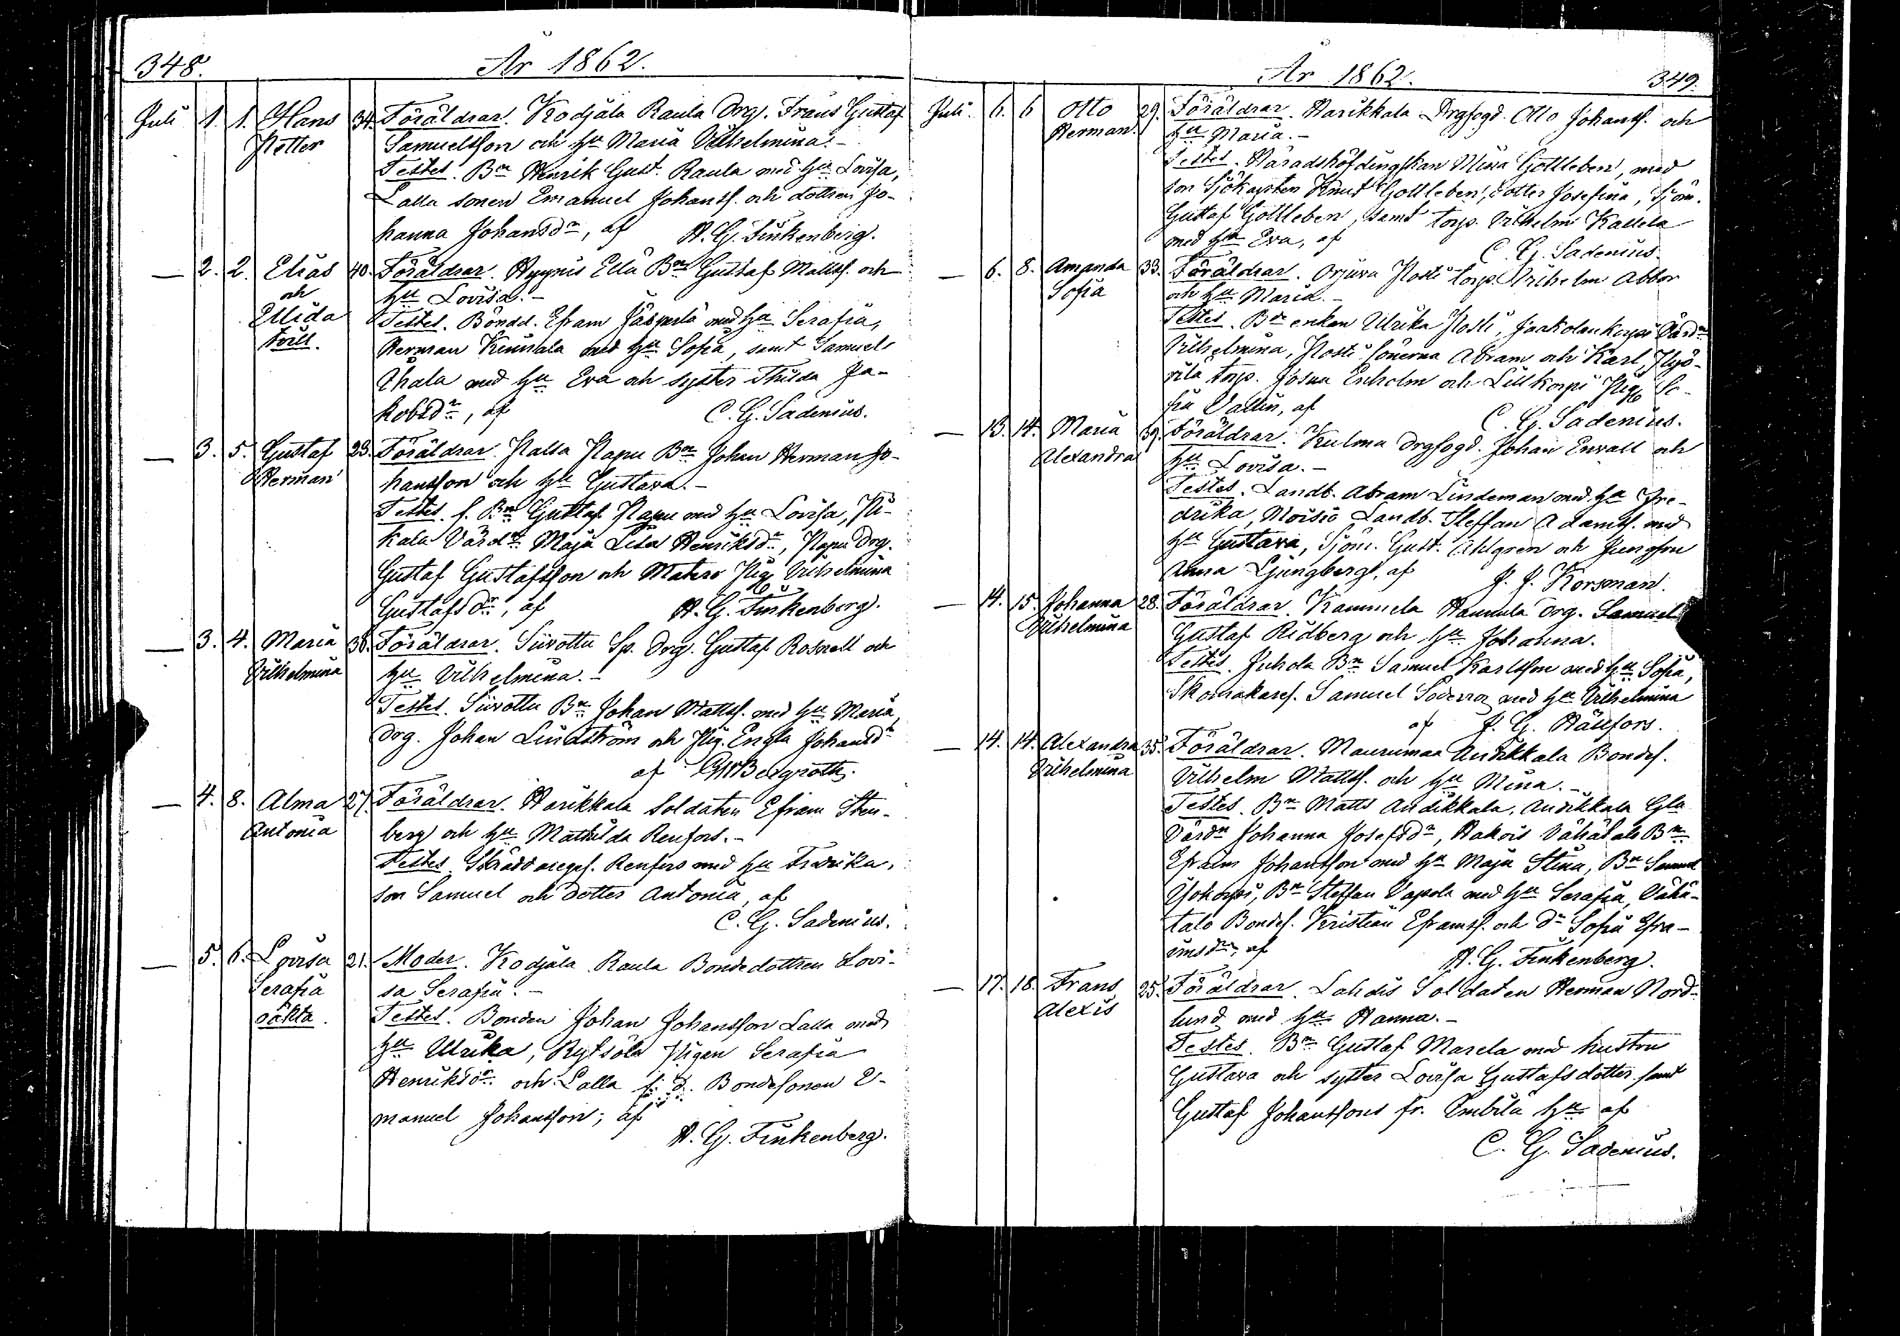 348.
År 1862.
Juli 1. 1. Hans 34. Föräldrar. Kodjala Raula Drg. Frans Gustaf
Petter Samuelsson och hu Maria Vilhelmina.-
Testes. Bn Henrik Gust. Raula med hu Lovisa,
Lalla sonen Emanuel Johanss. och dottren Jo-
hanna Johansdr, af H. G. Finkenberg.
— 2. 2. Elias 40. Föräldrar. Hyynis Ella Bn Gustaf Mattss. och
och hu Lovisa.-
Ellida Testes. Böndd. Efram Jäsperlä med hu Serafia,
tvill. Herman Kinnala med hu Sofia, samt Samuel
Uhala med hu Eva och syster Thilda Ja-
kobsdr, af C. G. Sadenius.
— 3. 5. Gustaf 23. Föräldrar. Palla Papu Bn Johan Herman Jo-
Herman hansson och hu Gustava.-
Testes. f. Bn Gustaf Papu med hu Lovisa, Pi-
kala Värdn Maja Lisa Henriksdr, Papu Drg.
Gustaf Gustafsson och Matero Pig. Vilhelmina
Gustafsdr, af H. G. Finkenberg.
— 3. 4. Maria 38. Föräldrar. Siivottu Sp. Drg. Gustaf Rosnell och
Vilhelmina hu Vilhelmina.-
Testes. Siivottu Bn Johan Mattss. med hu Maria,
Drg. Johan Lindström och Pig. Engla Johansdr
af Bergroth.
— 4. 8. Alma 27. Föräldrar. Harikkala Soldaten Efraim Sten-
Antonia berg och hu Mathilda Renfors.-
Testes. Skräddaregef. Renfors med hu Fredrika,
son Samuel och dotter Antonia, af
C. G. Sadenius.
— 5. 6. Lovisa 21. Moder. Kodjala Raula Bondedottren Lovi-
Serafia sa Serafia.-
oäkta. Testes. Bonden Johan Johansson Lalla med
hu Ulrika, Rytsölä Pigan Serafia
Henriksdr och Lalla f. d. Bondesonen E-
manuel Johansson; af
H. G. Finkenberg.
År 1862.
349.
Juli. 6. 6 Otto 29. Föräldrar. Harikkala Drgfogd. Otto Johanss. och
Herman. hu Maria.-
Testes. Häradshöfdingskan Mina Gottleben, med
son Sjökapten Knut Gottleben, dotter Josefina, Sjöm.
Gustaf Gottleben, samt torp. Vilhelm Kallela
med hu Eva, af C. G. Sadenius.
— 6. 8. Amanda 33. Föräldrar. Orjura Posti torp. Vilhelm Abbor
Sofia och hu Maria.-
Testes. Bn enkan Ulrika Posti, Jaakolankorpi Värdn
Vilhelmina, Posti sönerna Abram och Karl, Pyö-
rilä torp. Josua Ersholm och Lillkorpi Pig. So-
fia Vallin, af C. G. Sadenius.
— 13. 14. Maria 39. Föräldrar. Kulma Drgfogd. Johan Envall och
Alexandra hu Lovisa.-
Testes. Landb. Abram Lindeman med hu Fre-
drika, Moisio Landb. Steffan Adamss. med
hu Gustava, Sjöm. Gust. Ahlgren och Jungfru
Anna Ljungberg, af J. J. Korsman.
— 14. 15. Johanna 28. Föräldrar. Kammela Hannula Drg. Samuel
Vilhelmina Gustaf Ridberg och hu Johanna.
Testes. Juhola Bn Samuel Karlsson med hu Sofia,
Skomakaref. Samuel Söderroos med hu Vilhelmina
af J. G. Hällfors.
— 14. 14. Alexandra 35. Föräldrar. Maurumaa Andikkala Bondes.
Vilhelmina Vilhelm Mattss. och hu Mina.-
Testes. Bn Matts Andikkala, Andikkala Gla
Värdn Johanna Josefsdr, Hakois Vähätalo Bn
Efraim Johansson med hu Maja Stina, Bn Samuel
Yjokorpi, Bn Steffan Vapola med hu Serafia, Vähä-
talo Bondes. Kristian Eframss. och dr Sofia Efra-
imsdr, af H. G. Finkenberg.
— 17. 18. Frans 25. Föräldrar. Lahdis Soldaten Herman Nord-
Alexis lund med hu Hanna.-
Testes. Bn Gustaf Marela med hustru
Gustava och syster Lovisa Gustafsdotter samt
Gustaf Johanssons fr. Imbilä hu af
C. G. Sadenius.